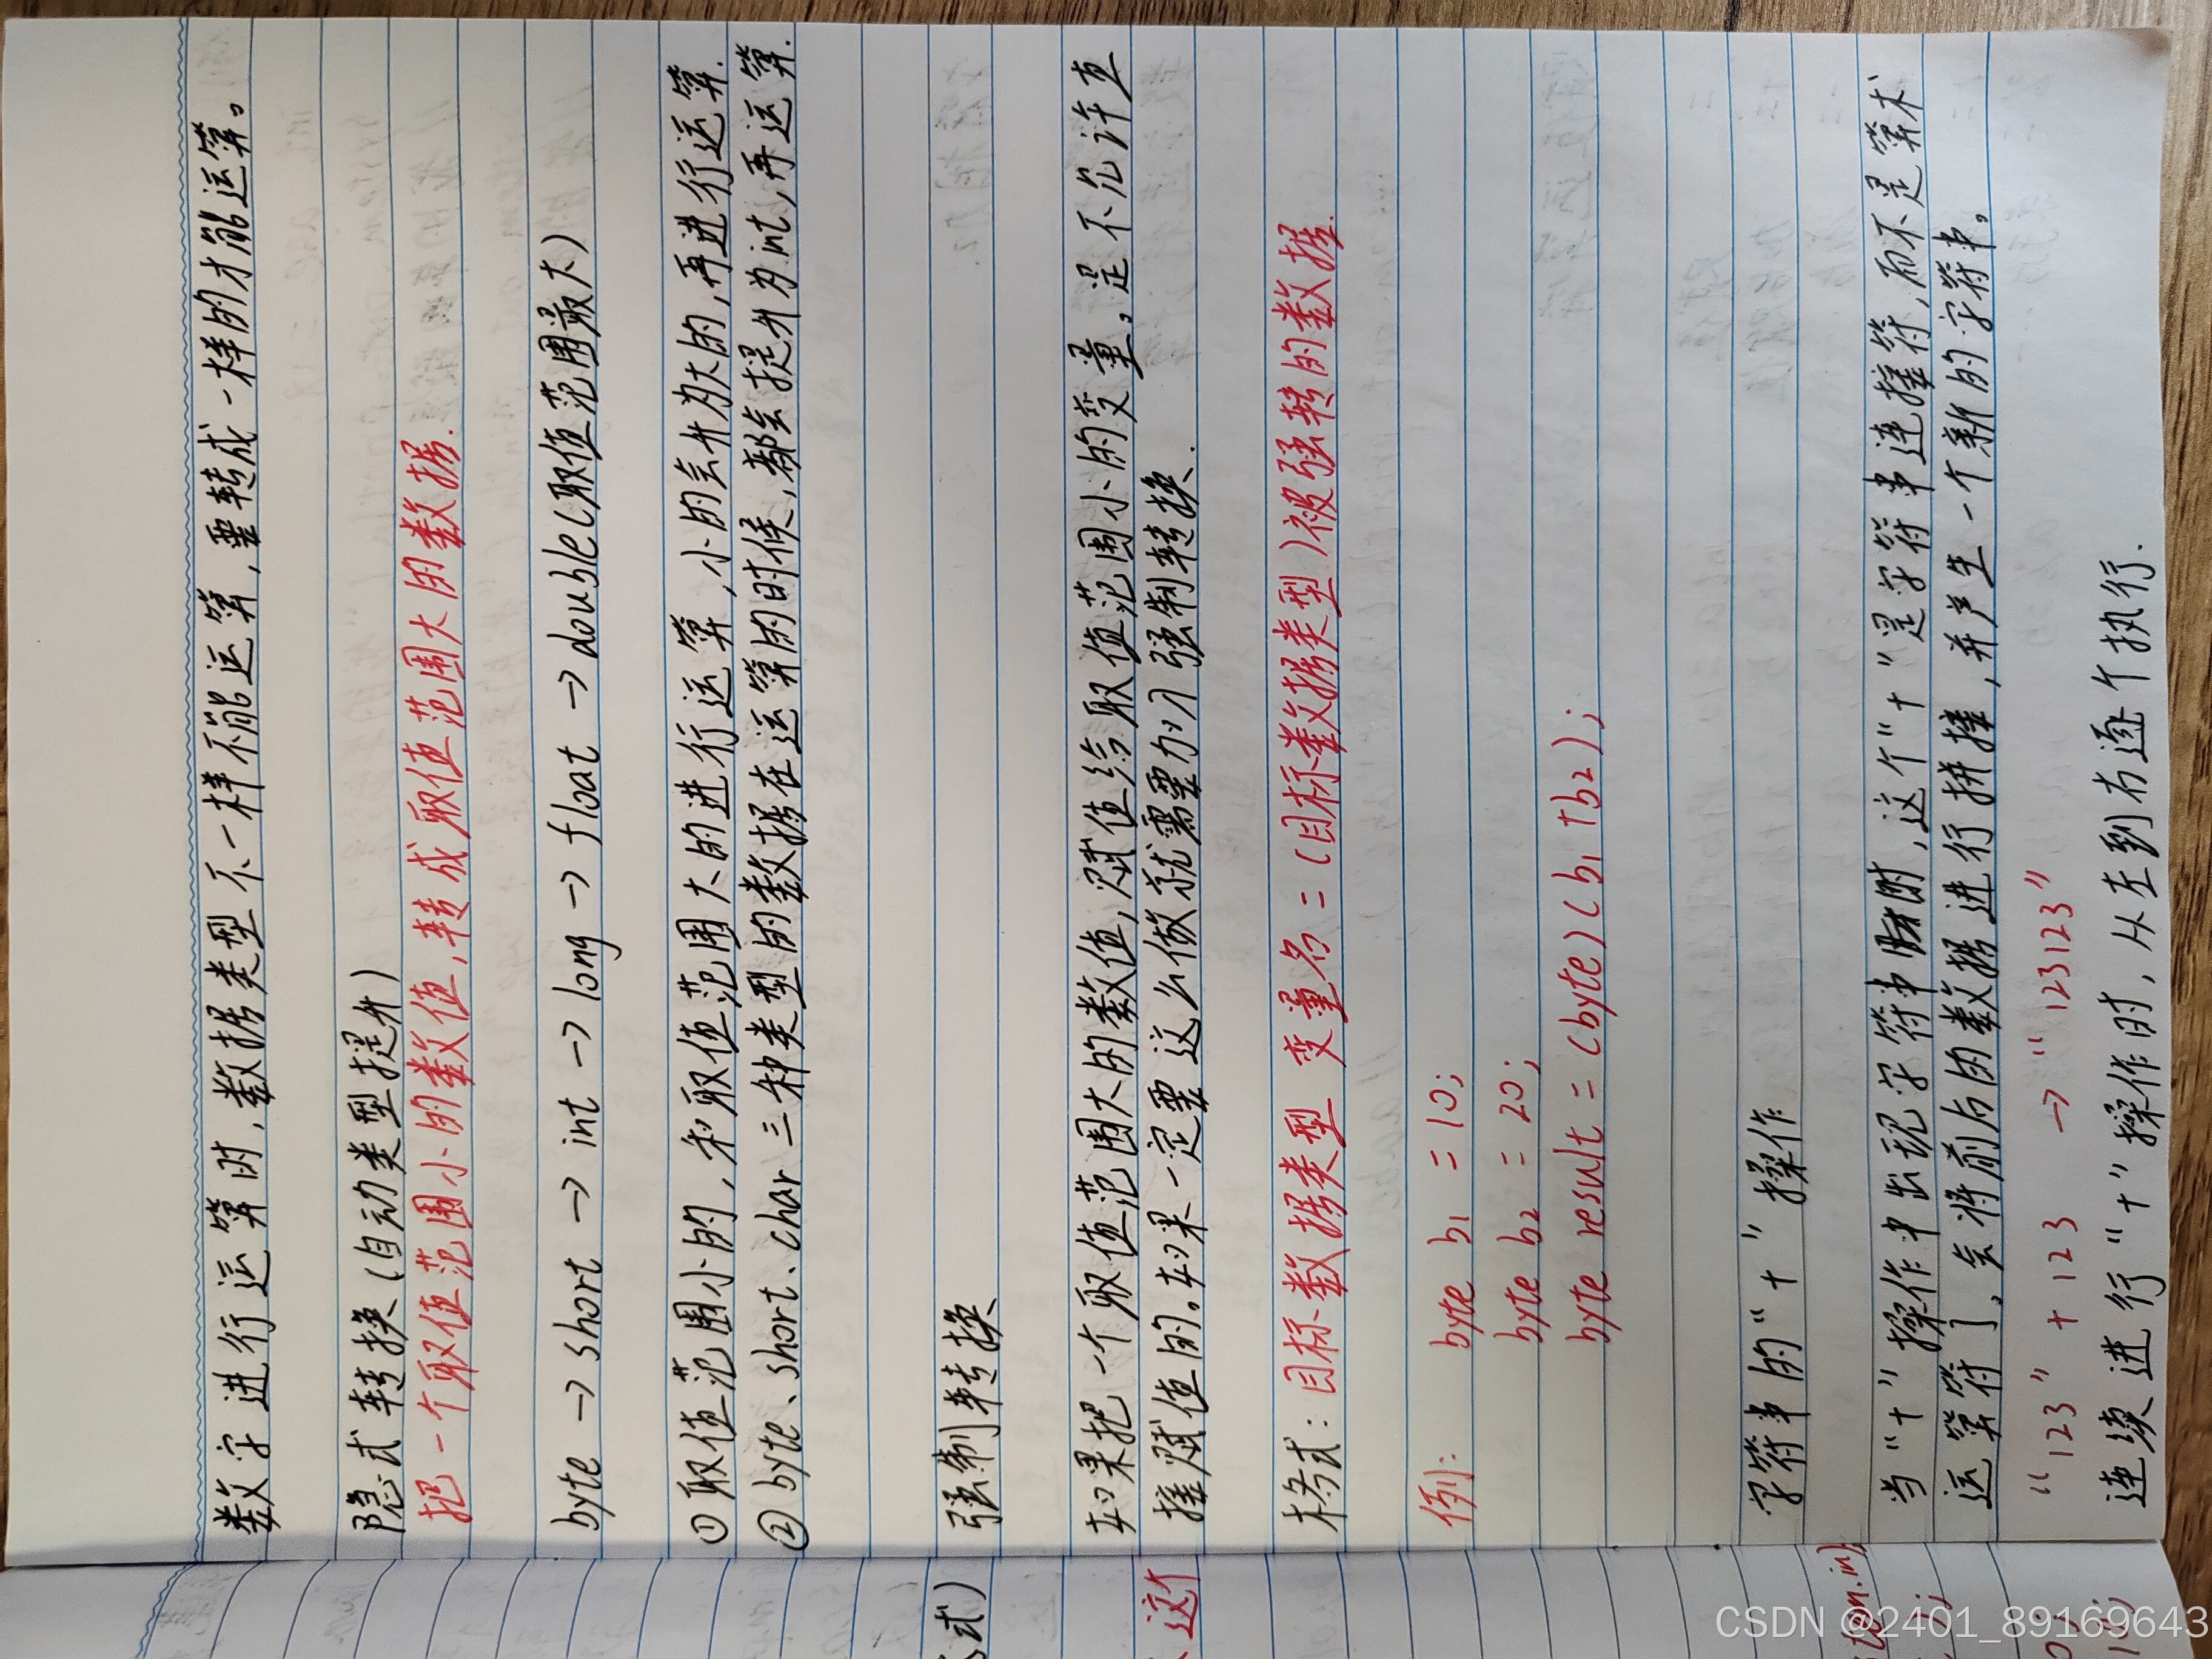 数字进行运算时,数据类型不一样不能运算,要转成一样的才能运算。
隐式转换(自动类型提升)
把一个取值范围小的数值,转成取值范围大的数据.
byte → short → int → long → float → double(取值范围最大)
①取值范围小的,和取值范围大的进行运算,小的会升为大的,再进行运算.
②byte、short、char三种类型的数据在运算的时候,都会提升为int,再运算.
强制转换
如果把一个取值范围大的数值,赋值给取值范围小的变量。是不允许直
接赋值的。如果一定要这么做就需要加入强制转换.
格式:目标数据类型 变量名=(目标数据类型)被强转的数据.
例: byte b1 = 10;
byte b2 = 20;
byte result = (byte)(b1+b2);
字符串的"+"操作
当"+"操作中出现字符串时,这个"+"是字符串连接符,而不是算术
运算符了,会将前后的数据进行拼接,并产生一个新的字符串。
"123" + 123 → "123123"
连续进行"+"操作时,从左到右逐个执行.
式)
这个
CSDN @2401_89169643